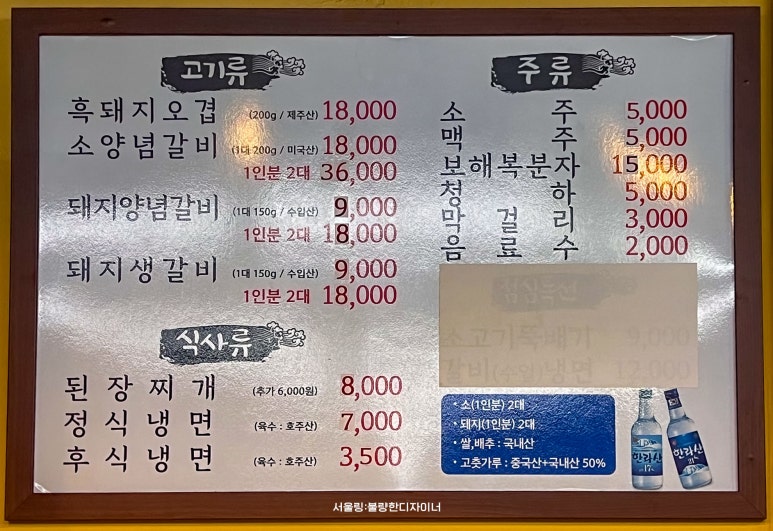 고기류
흑돼지오겹 (200g / 제주산) 18,000
소양념갈비 (1대 200g / 미국산) 18,000
1인분 2대 36,000
돼지양념갈비 (1대 150g / 수입산) 9,000
1인분 2대 18,000
돼지생갈비 (1대 150g / 수입산) 9,000
1인분 2대 18,000
식사류
된장찌개 (추가 6,000원) 8,000
정식냉면 (육수 : 호주산) 7,000
후식냉면 (육수 : 호주산) 3,500
주류
소주 5,000
맥주 5,000
보해복분자 15,000
청하 5,000
막걸리 3,000
음료수 2,000
점심특선
소고기뚝배기 ,000
갈비(수입)냉면 12,000
· 소(1인분) 2대
· 돼지(1인분) 2대
· 쌀,배추 : 국내산
· 고춧가루 : 중국산+국내산 50%
한라산
17
한라산
21
서울링:불량한디자이너